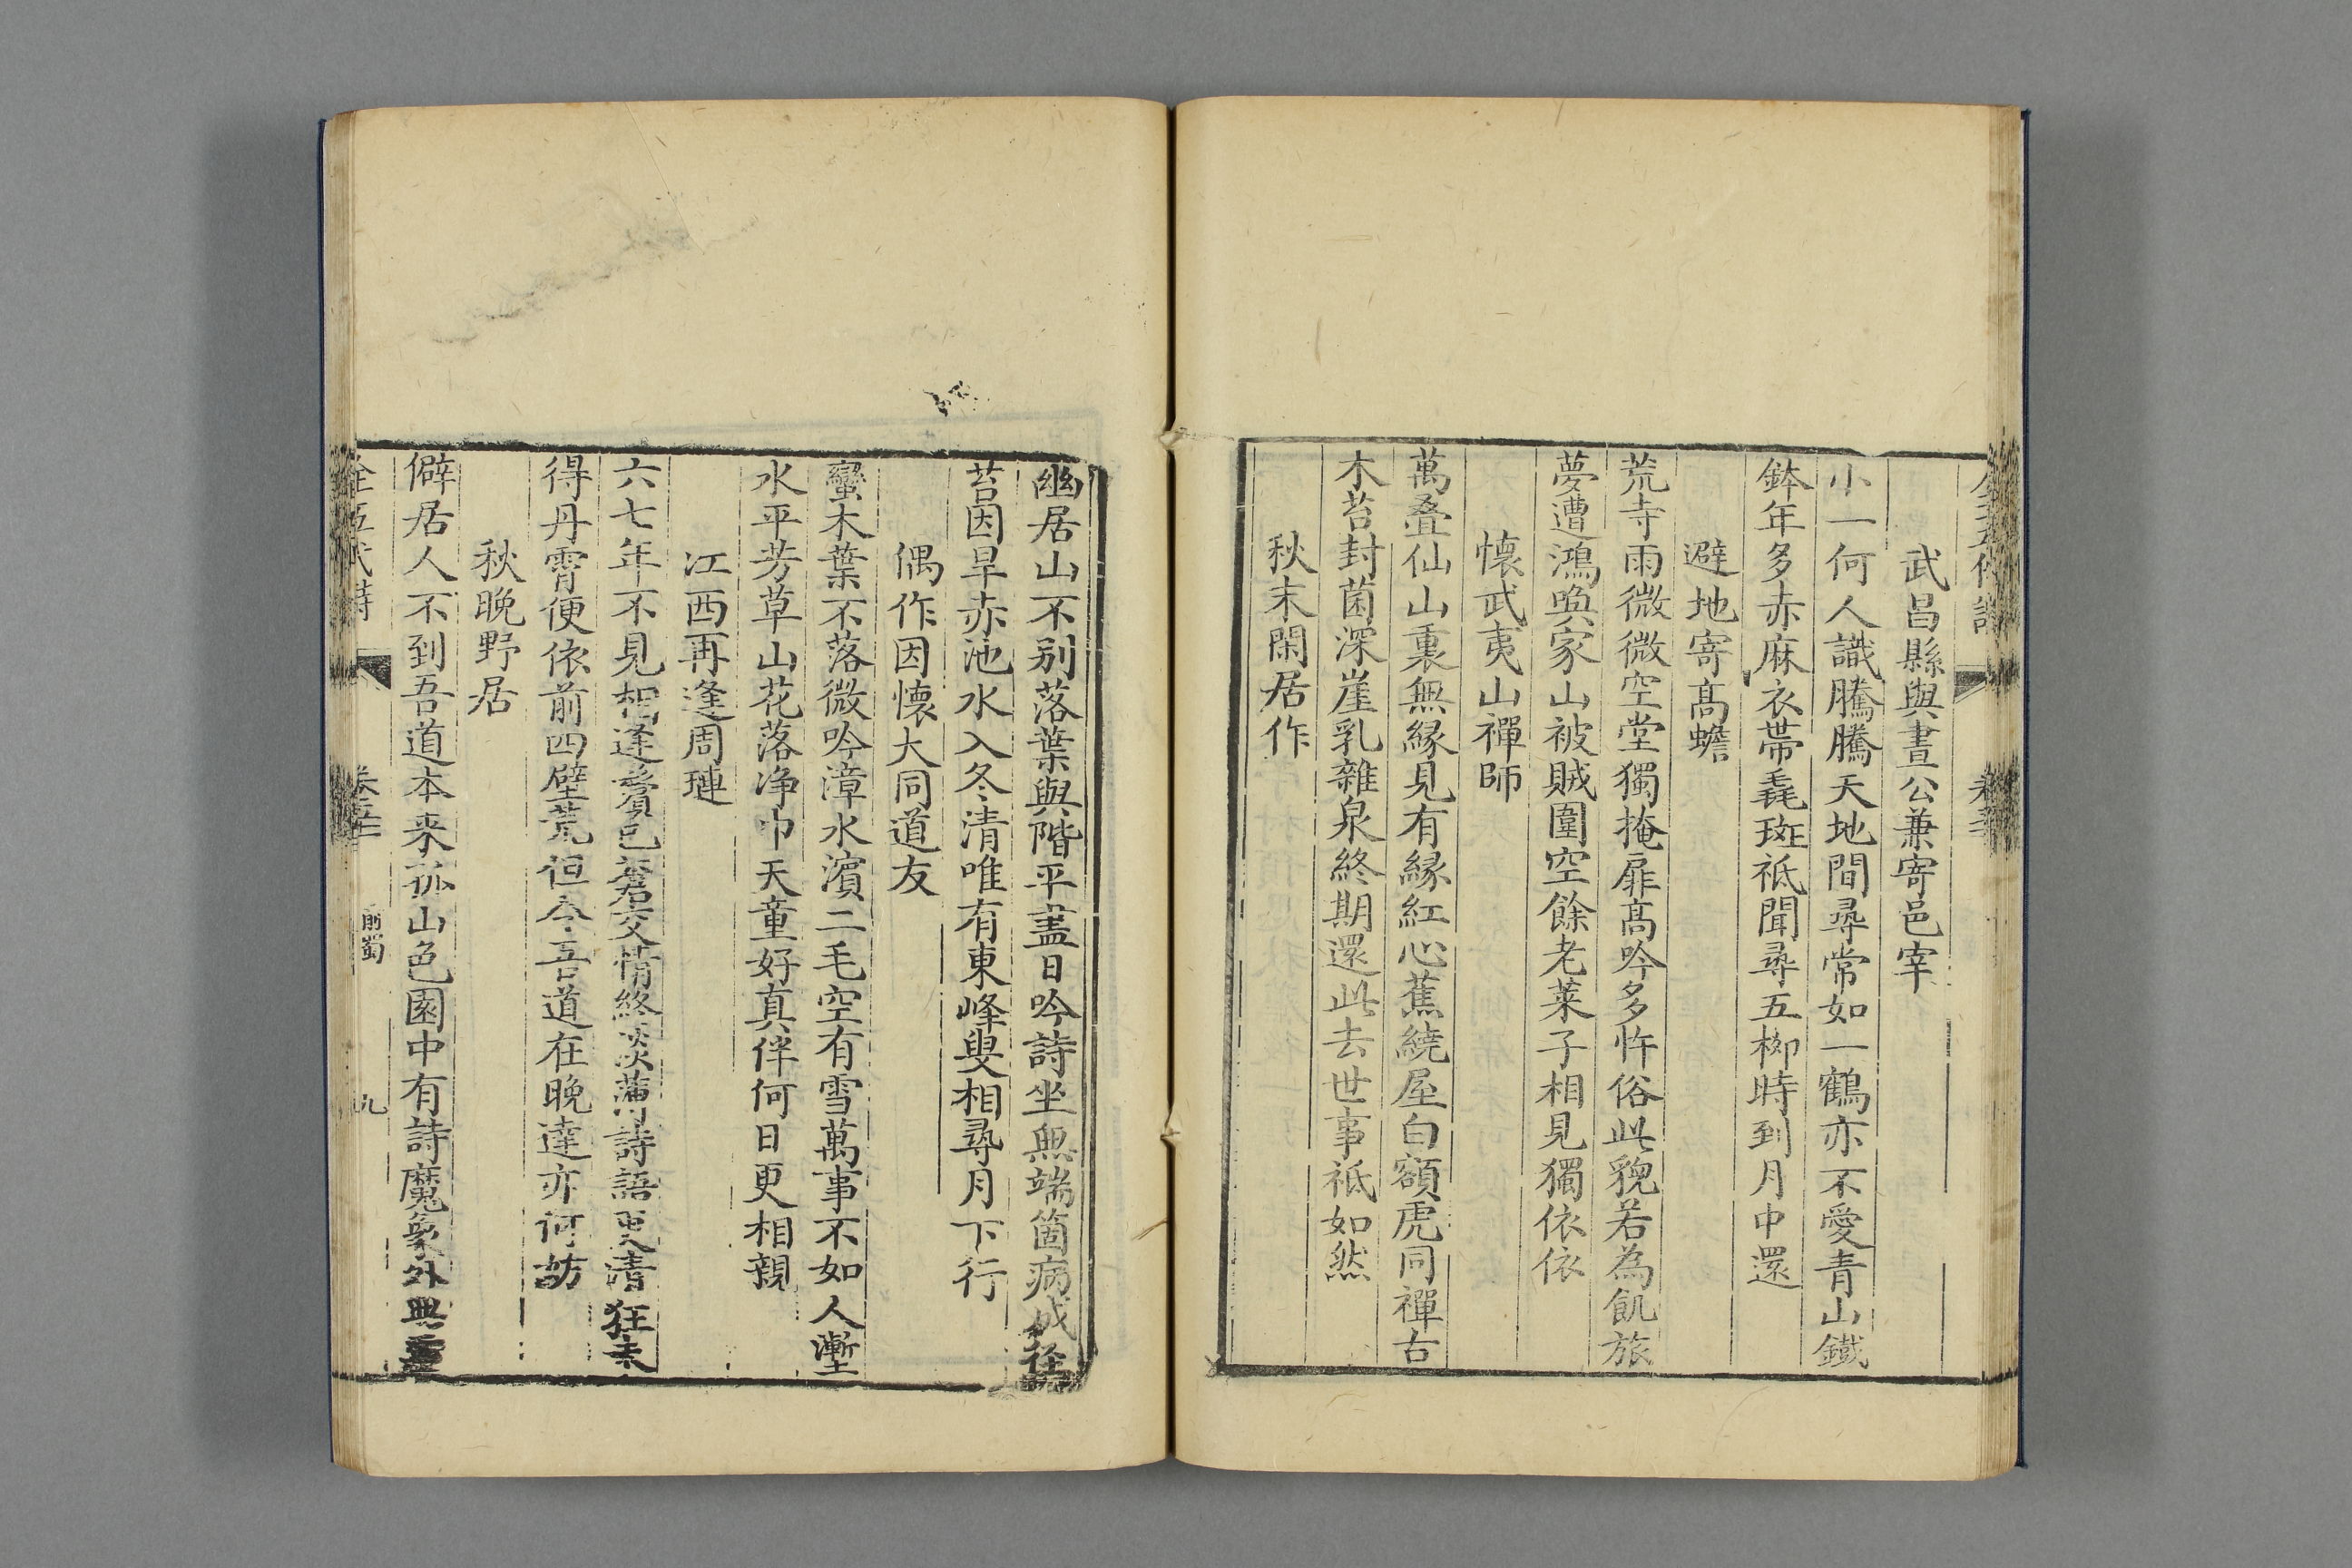 武昌縣與晝公兼寄邑宰
小一何人識騰騰天地間尋常如一鶴亦不愛青山鐵
鉢年多赤麻衣帶毳斑祗聞尋五桞時到月中還
避地寄髙蟾
荒寺雨微微空堂獨掩扉髙吟多忤俗此貌若為飢旅
夢遭鴻喚家山被賊圍空餘老萊子相見獨依依
懷武夷山禪師
萬疊仙山裏無縁見有縁紅心蕉繞屋白額虎同禪古
木苔封菌深崖乳雜泉終期還此去世事祗如然
秋末閑居作
幽居山不别落葉與階平盡日吟詩坐無端箇病成徑
苔因旱赤池水入冬清唯有東峰叟相尋月下行
偶作因懷大同道友
蠻木葉不落微吟漳水濱二毛空有雪萬事不如人漸
水平芳草山花落净巾天童好真伴何日更相親
江西再逢周璉
六七年不見相逢鬢已蒼交情終淡薄詩語更清狂未
得丹霄便依前四壁荒但令吾道在晚達亦何妨
秋晚野居
僻居人不到吾道本来孤山色園中有詩魔象外無
全五代詩
前蜀
九